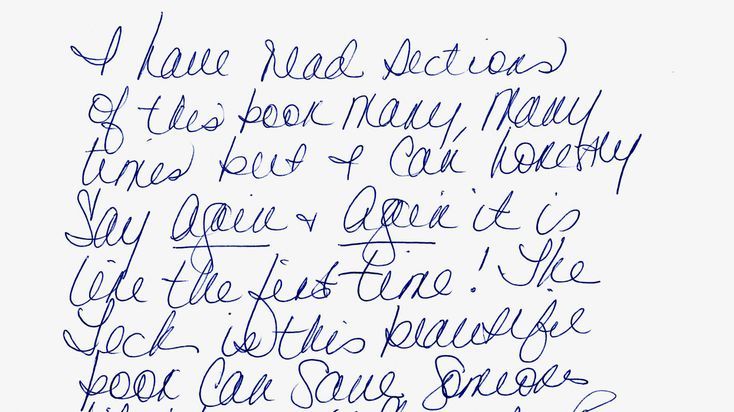 I have read sections
of this book many, many
times but I can honestly
Say again & Again it is
like the first time! The
is this beautiful
book can save someone